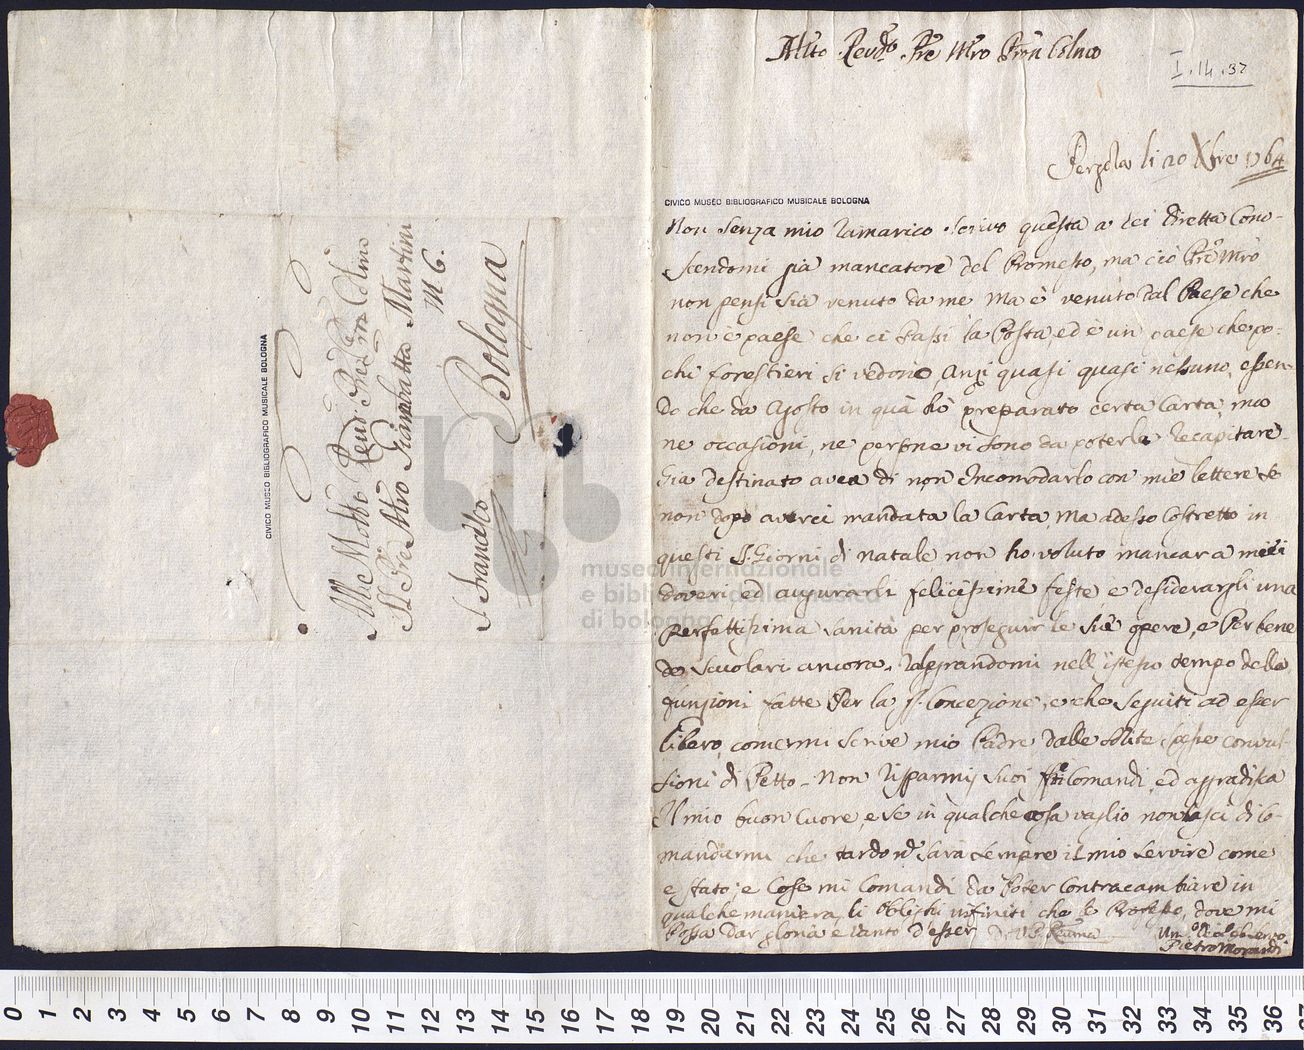 Molto Revdo Pre Mro Pron Colmo
I.14.37
Pergola li 20 Xbre 1764
CIVICO MUSEO BIBLIOGRAFICO MUSICALE BOLOGNA
Non senza mio ramarico scrivo questa a lei diretta Cono-
scendomi già mancatore del Promesso, ma ciò Pre Mro
non pensi sia venuto da me ma è venuto dal Paese che
non è paese che ci passi la Posta ed è un paese che po-
chi forestieri si vedono, Anzi quasi quasi nessuno, essen-
do che da Agosto in quà hò preparato certa Carta, ma
ne occasioni, ne persone vi sono da poterla recapitare.
Già destinato avea di non Incomodarlo con mie lettere se
non dopo averci mandata la Carta, Ma adesso Costretto in
questi S. Giorni di natale non ho voluto mancar a miei
doveri ed augurarli felicissime feste e desiderargli una
perfettissima sanità per proseguir le sue opere, e Per bene
de Scuolari ancora, rallegrandomi nell'istesso tempo delle
funzioni fatte Per la SS. Concezione, e che seguiti ad esser
libero, come mi scrive mio Padre dalle solite spesse convul-
sioni di Petto. Non risparmij suoi Comandi, ed aggradisca
Il mio buon Cuore, e se in qualche cosa vaglio non lasci di co-
mandarmi che tardo nò sarà sempre il mio servire come
e stato, e Cose mi Comandi da Poter Contracambiare in
qualche maniera li Oblighi infiniti che le Professo, dove mi
Possa dar gloria e vanto d'esser D. V. P. Rma
Um
Pietro Morandi
CIVICO MUSEO BIBLIOGRAFICO MUSICALE BOLOGNA
Alle Molto Revd Pre Pron Colmo
Il Pre Mro Giambatta Martini
M. C.
S. Francesco Bologna
museo internazionale
e biblioteca della musica
di bologna
0 1 2 3 4 5 6 7 8 9 10 11 12 13 14 15 16 17 18 19 20 21 22 23 24 25 26 27 28 29 30 31 32 33 34 35 36 37